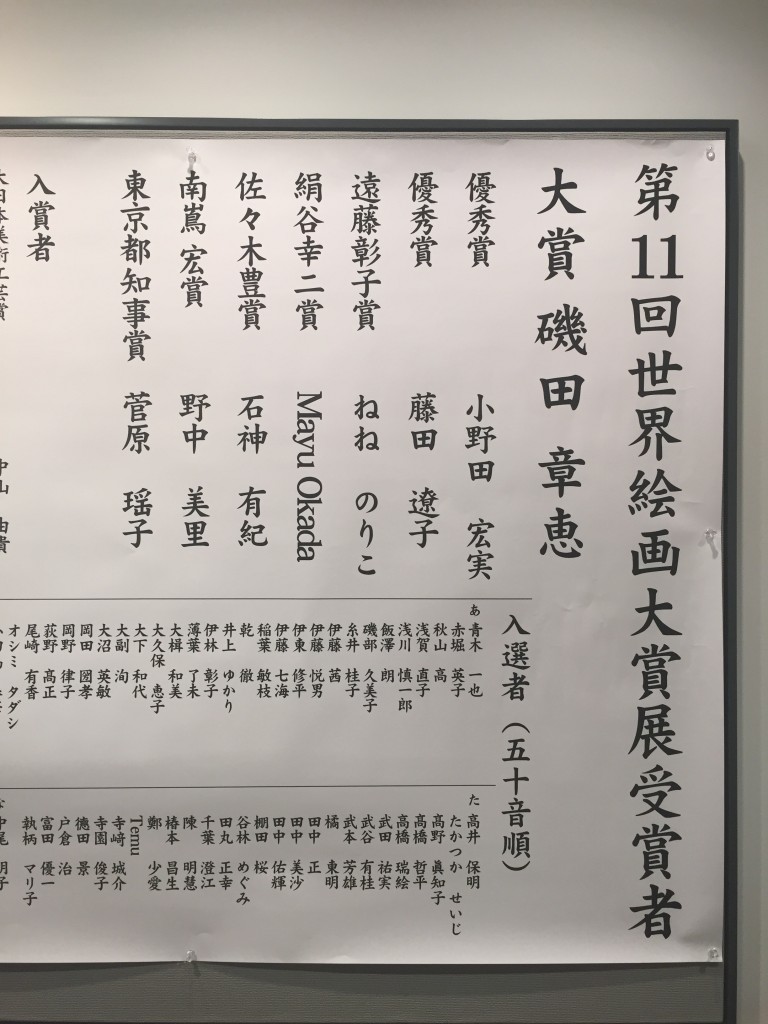 第11回世界絵画大賞展受賞者
大賞 磯田 章恵
優秀賞 小野田 宏実
優秀賞 藤田 遼子
遠藤彰子賞 ねね のりこ
絹谷幸二賞 Mayu Okada
佐々木豊賞 石神 有紀
南嶌宏賞 野中 美里
東京都知事賞 菅原 瑶子
入賞者
中山 由貴
入選者(五十音順)
あ 青木 一也
赤堀 英子
秋山 高
浅賀 直子
浅川 慎一郎
飯澤 朗
磯部 久美子
糸井 桂子
伊藤 茜
伊藤 悦男
伊東 修平
伊藤 七海
稲葉 敏枝
乾 徹
井上 ゆかり
伊林 彰子
薄葉 了未
大楫 和美
大久保 恵子
大下 和代
大副 洵
大沼 英敏
岡田 圀孝
岡野 律子
荻野 高正
尾崎 有香
オシミ タダシ
た 高井 保明
たかつか せいじ
高野 眞知子
高橋 哲平
高橋 瑞絵
武田 祐実
武谷 有桂
武本 芳雄
橘 東明
田中 正
田中 美沙
田中 佑輝
棚田 桜
谷林 めぐみ
田丸 正幸
千葉 澄江
陳 明慧
椿本 昌生
鄭 少愛
Temu
寺崎 城介
寺園 俊子
德田 景
戸倉 治
富田 優一
執柄 マリ子